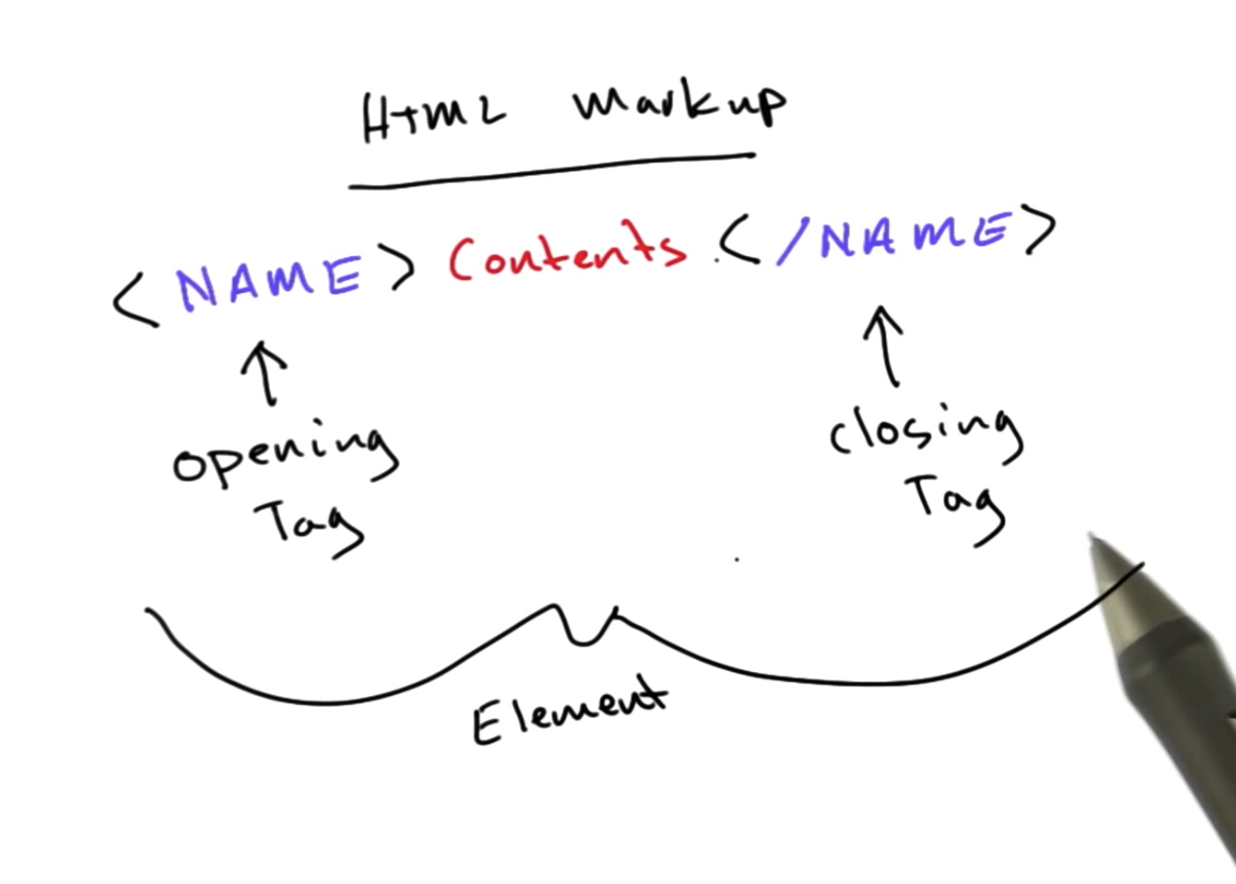 HTML Markup
<NAME> Contents </NAME>
opening
Tag
closing
Tag
Element